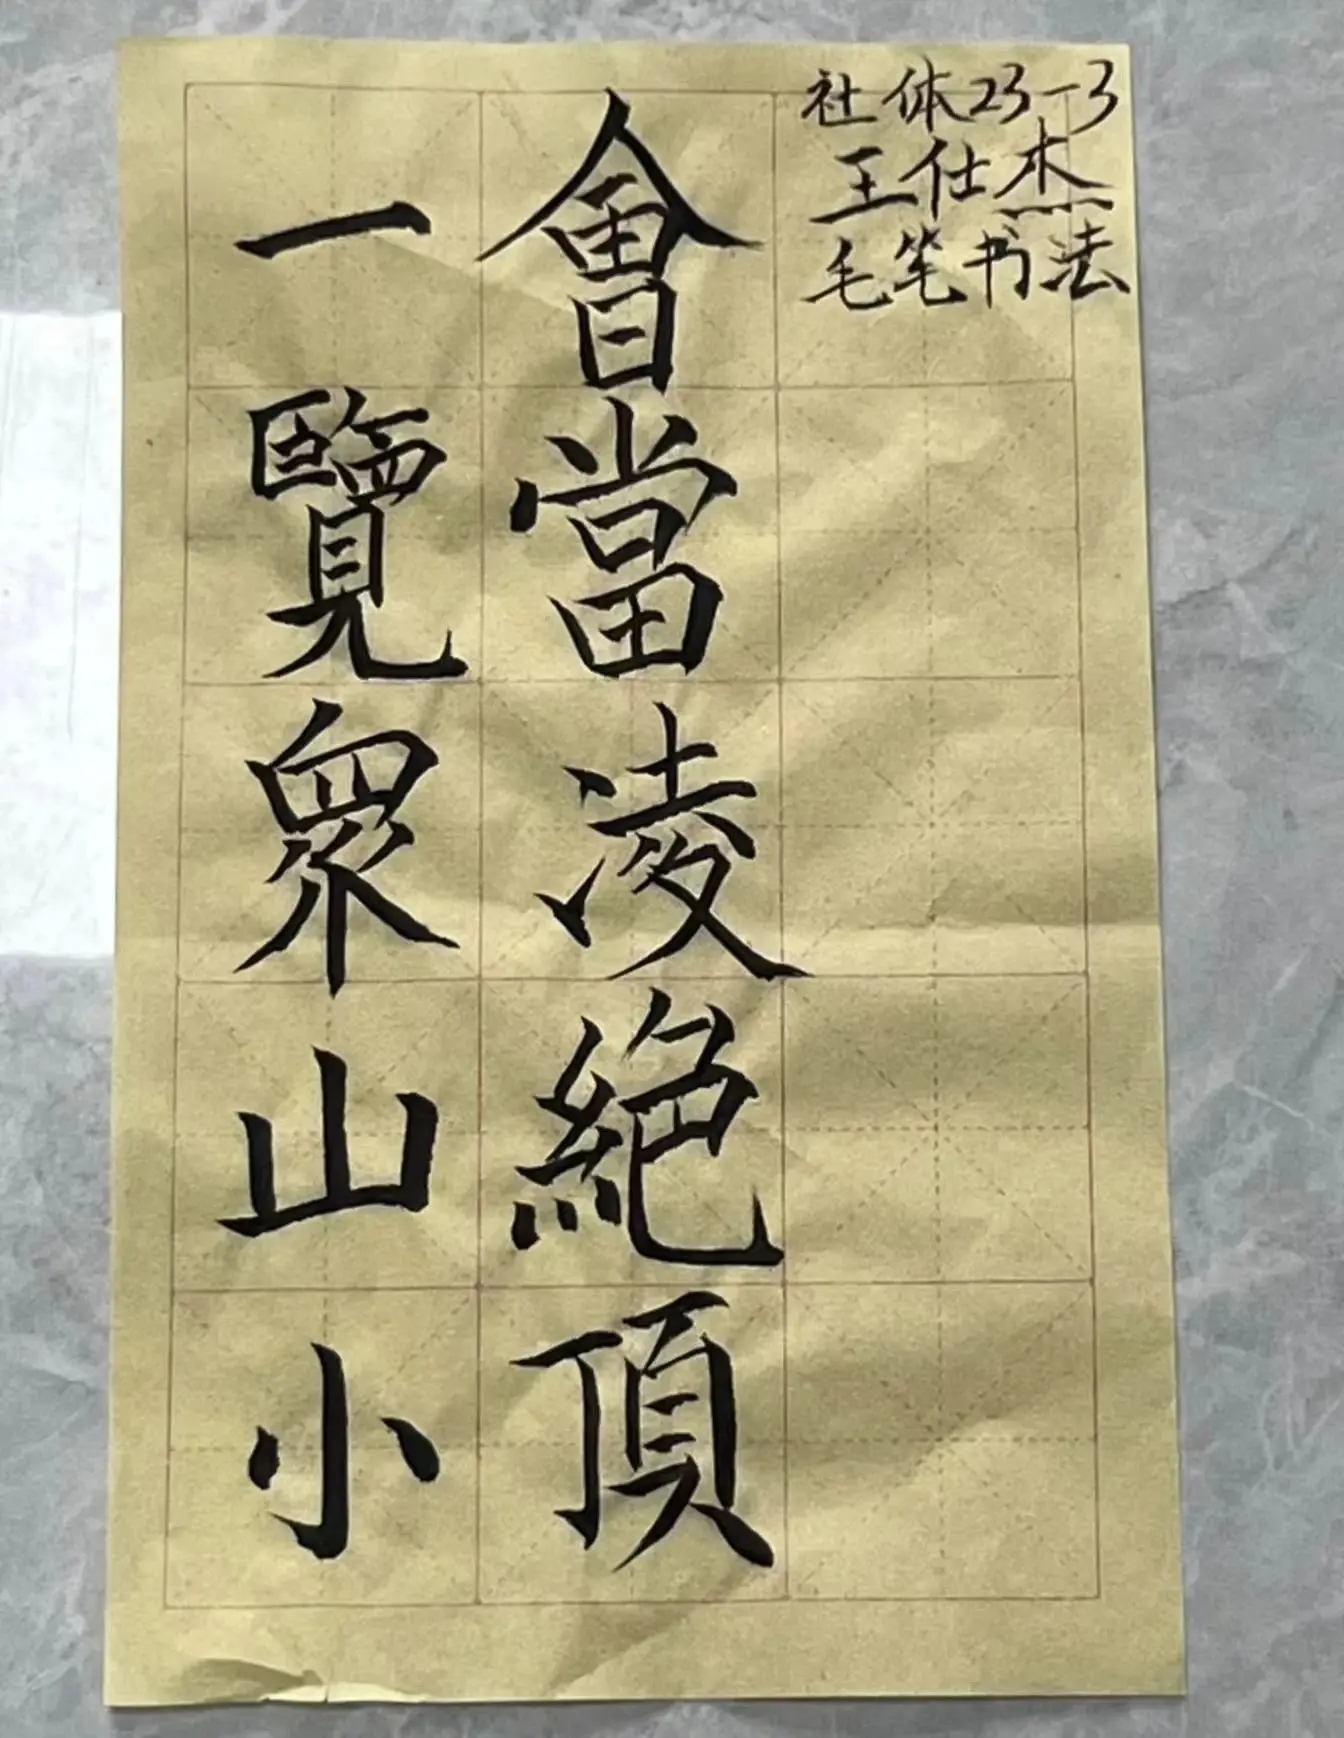 社体23-3
王仕杰
毛笔书法
會當凌絶頂
一覽眾山小